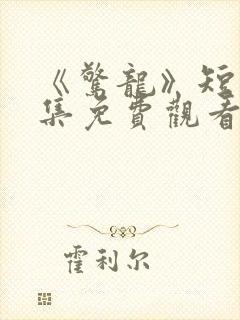 《驚龍》短
集免費觀看
霍利尔